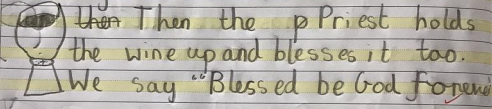 then Then the p Priest holds
the wine up and blesses it too.
We say "Blessed be God forever